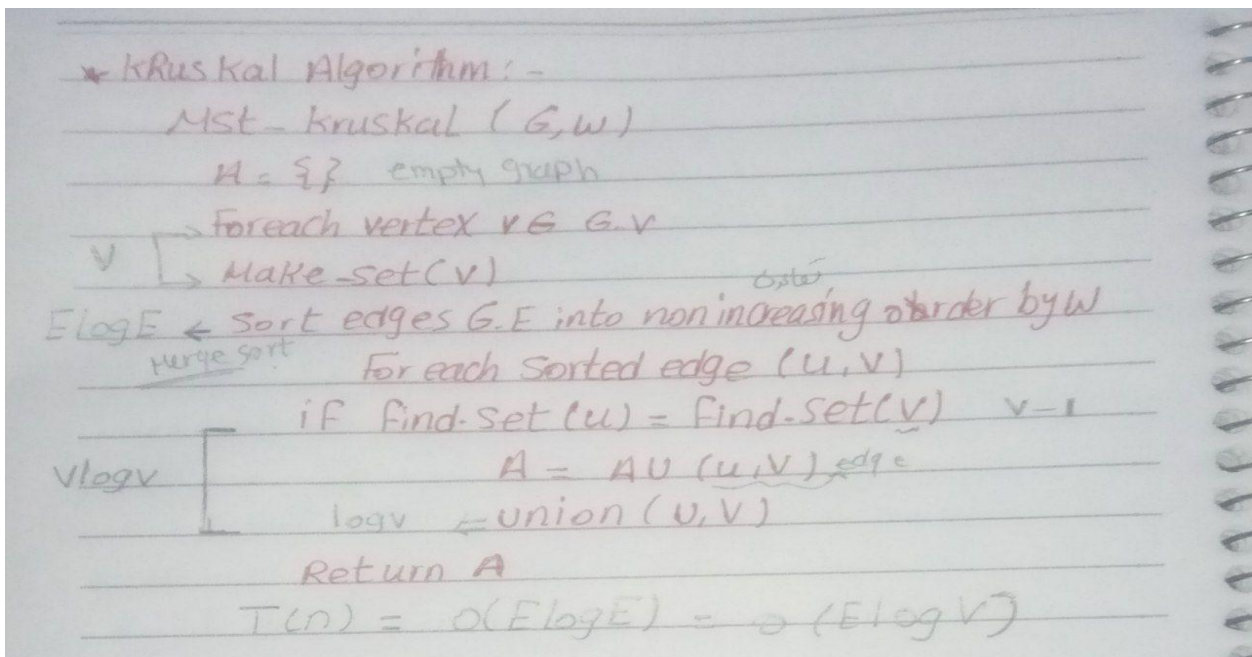 * KRuskal Algorithm:-
Mst-kruskal (G,W)
A = {} empty graph
V Foreach vertex v ∈ G.V
Make-set(v)
ElogE ← Sort edges G.E into nonincreasing order by W
Merge sort
For each Sorted edge (u,v)
if find-set(u) = find-set(v) V-1
Vlogv A = AU (u,v) edge
logv ← union (u,v)
Return A
T(n) = O(ElogE) = O(ElogV)